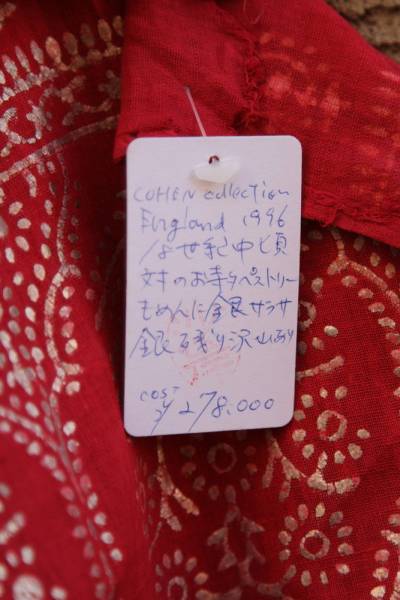 COHEN collection
England 1996
18世紀中頃
対のお寺タペストリー
もめんに金銀サラサ
銀残り沢山あり
COST
¥278.000